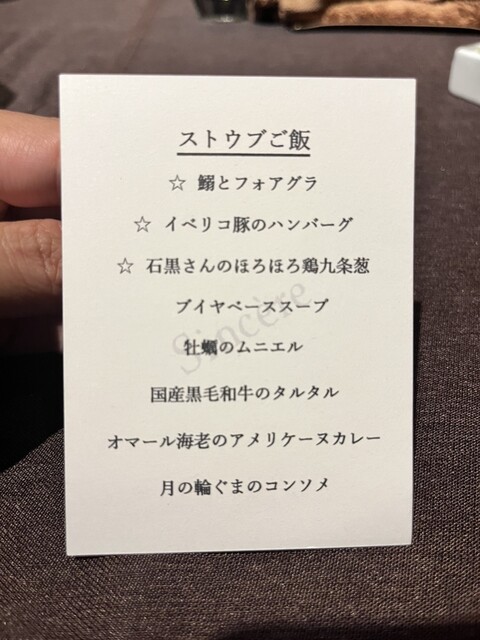 ストウブご飯
☆ 鰯とフォアグラ
☆ イベリコ豚のハンバーグ
☆ 石黒さんのほろほろ鶏九条葱
ブイヤベーススープ
Sincère
牡蠣のムニエル
国産黒毛和牛のタルタル
オマール海老のアメリケーヌカレー
月の輪ぐまのコンソメ